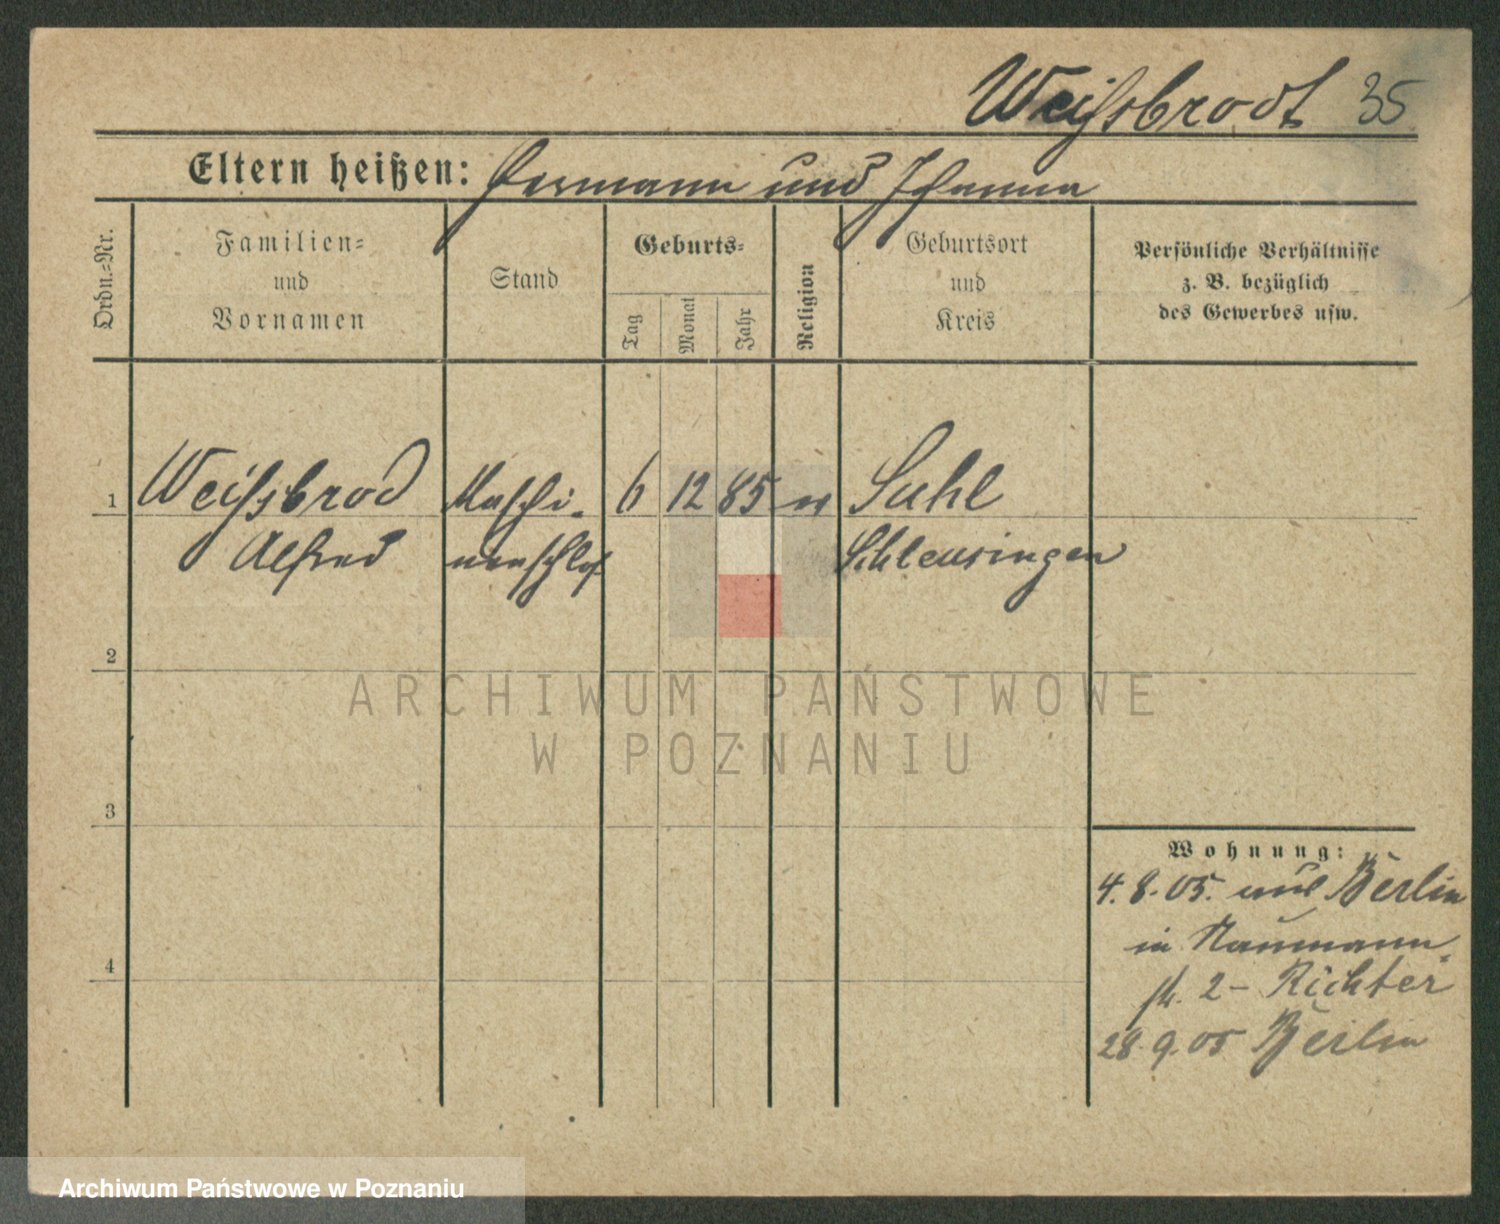 Weißbrodt 35
Eltern heißen: Hermann und Johanna
Ordn.-Nr.
Familien-
und
Vornamen
Stand
Geburts-
Tag
Monat
Jahr
Religion
Geburtsort
und
Kreis
Persönliche Verhältnisse
z. B. bezüglich
des Gewerbes usw.
1 Weißbrod Maschi- 6 12 85 Suhl
Alfred nenschloß Schleusingen
2
3
4
Wohnung:
4. 8. 05. aus Berlin
in Naumann-
str. 2 - Richter
28. 9. 05 Berlin
ARCHIWUM PAŃSTWOWE
W POZNANIU
Archiwum Państwowe w Poznaniu